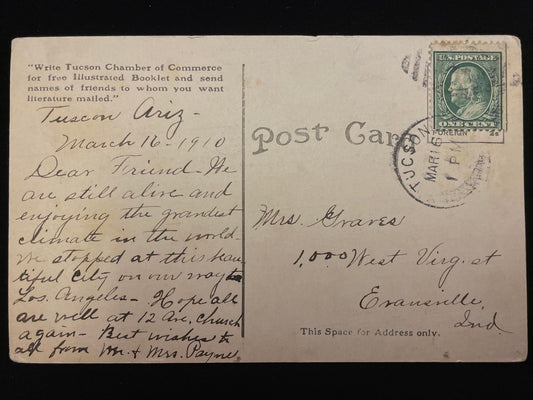 "Write Tucson Chamber of Commerce
for free Illustrated Booklet and send
names of friends to whom you want
literature mailed."
Tuscon Ariz-
March 16-1910
Dear Friend-We
are still alive and
enjoying the grandest
climate in the world-
we stopped at this beau
tiful city on our way to
Los. Angeles- Hope all
are well at 12 Ave. Church
again- Best wishes to
all from Mr. & Mrs. Payne
Post Card
U.S. POSTAGE
ONE CENT
FOREIGN 2c
TUCSON
MAR 16
1 PM
Mrs. Graves
1,000 West Virg. st
Evansville,
Ind.
This Space for Address only.